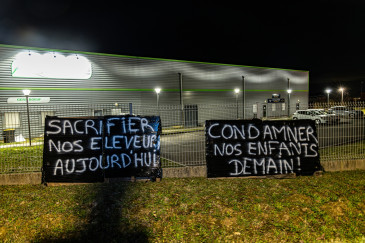 SACRIFIER
NOS ELEVEURS
AUJOURD'HUI
CONDAMNER
NOS ENFANTS
DEMAIN!